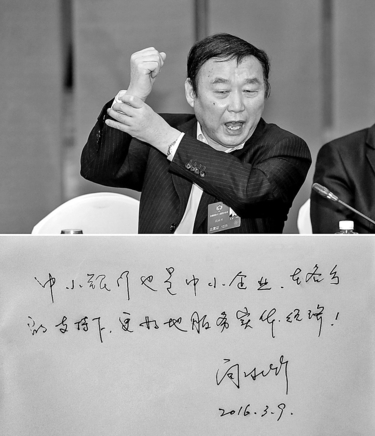 中小银行也是中小企业,在各方
的支持下,更好地服务实体经济!
2016.3.9.